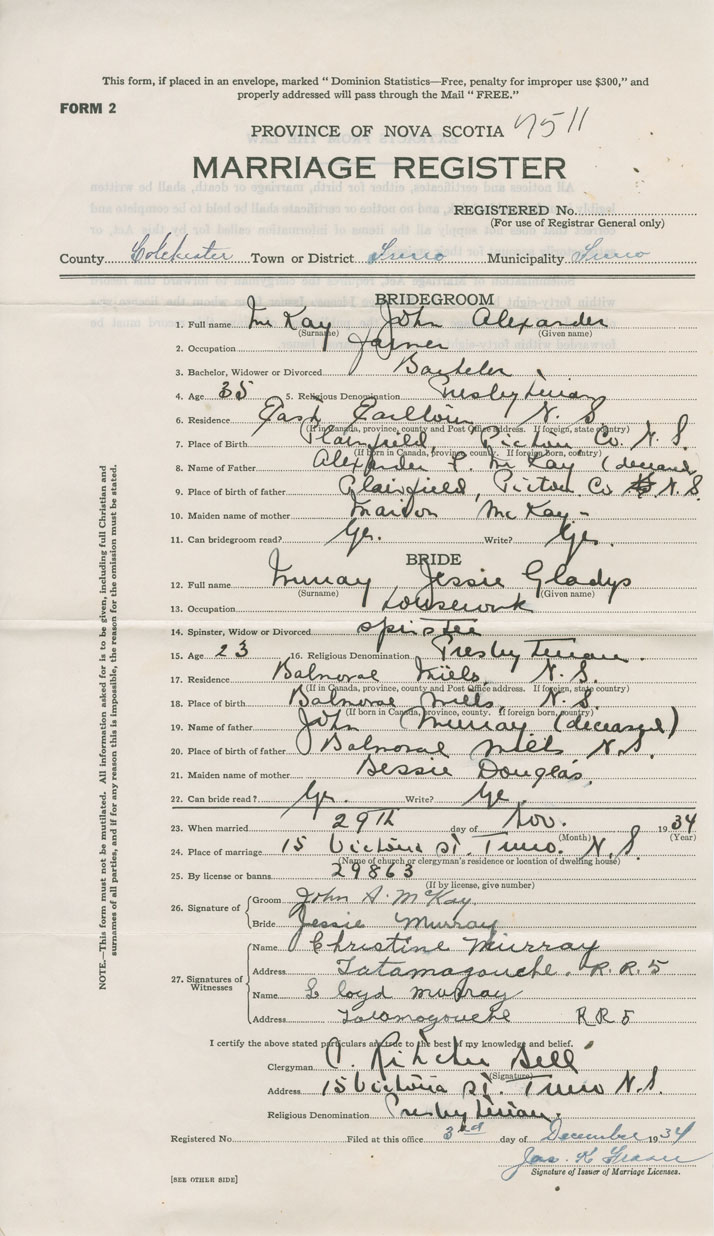 This form, if placed in an envelope, marked "Dominion Statistics—Free, penalty for improper use $300," and
properly addressed will pass through the Mail "FREE."
FORM 2
PROVINCE OF NOVA SCOTIA 7511
MARRIAGE REGISTER
REGISTERED No.
(For use of Registrar General only)
County Colchester Town or District Truro Municipality Truro
BRIDEGROOM
1. Full name McKay John Alexander
(Surname) (Given name)
2. Occupation Farmer
3. Bachelor, Widower or Divorced Bachelor
4. Age 35 5. Religious Denomination Presbyterian
6. Residence East Earltown N. S
(If in Canada, province, county and Post Office address. If foreign, state country)
7. Place of Birth Plainfield, Pictou Co. N. S.
(If born in Canada, province, county. If foreign born, country)
8. Name of Father Alexander McKay (deceased
9. Place of birth of father Plainfield, Pictou Co N.S.
10. Maiden name of mother Marion McKay -
11. Can bridegroom read? Yes. Write? Yes.
BRIDE
12. Full name Murray Jessie Gladys
(Surname) (Given name)
13. Occupation Housework
14. Spinster, Widow or Divorced Spinster
15. Age 23 16. Religious Denomination Presbyterian.
17. Residence Balmoral Mills, N. S.
(If in Canada, province, county and Post Office address. If foreign, state country)
18. Place of birth Balmoral Mills, N. S
(If born in Canada, province, county. If foreign born, country)
19. Name of father John Murray (deceased)
20. Place of birth of father Balmoral Mills N.S.
21. Maiden name of mother Bessie Douglas.
22. Can bride read? Yes. Write? Yes.
23. When married 29th day of Nov. 1934
(Month) (Year)
24. Place of marriage 15 Victoria St. Truro. N. S.
(Name of church or clergyman's residence or location of dwelling house)
25. By license or banns 29863
(If by license, give number)
26. Signature of Groom John A. McKay
Bride Jessie Murray
27. Signatures of Witnesses
Name Christine Murray
Address Tatamagouche. R. R. 5
Name Lloyd Murray
Address Tatamagouche R R 5
I certify the above stated particulars are true to the best of my knowledge and belief.
Clergyman Ritchie Bell
(Signature)
Address 15 Victoria St. Truro N.S.
Religious Denomination Presbyterian.
Registered No. Filed at this office 3rd day of December 1934
Jas. K
Signature of Issuer of Marriage Licenses.
[SEE OTHER SIDE]
NOTE.—This form must not be mutilated. All information asked for is to be given, including full Christian and
surnames of all parties, and if for any reason this is impossible, the reason for the omission must be stated.